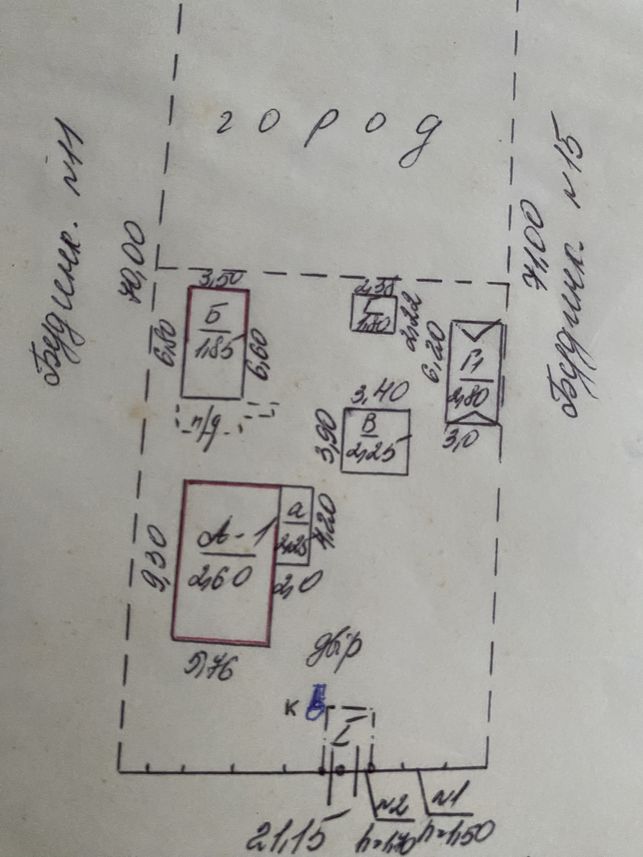 город
Будинк. №11
70,00
Будинк. №15
71,00
3,50
Б
1,85
6,80
6,60
п/б
2,38
Г
1,80
2,22
6,20
2,80
3,0
3,40
В
2,25
3,90
А-1
2,60
9,30
5,76
а
2,25
4,20
2,0
двір
К
I
21,15
№2
h=1,70
№1
h=1,50